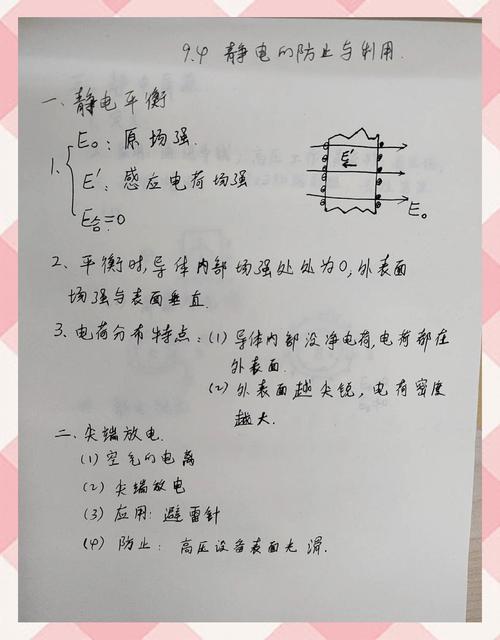 9.4 静电的防止与利用.
一、静电平衡
1. E₀: 原场强.
E': 感应电荷场强
E合=0
E'
E₀
2、平衡时,导体内部场强处处为0,外表面
场强与表面垂直.
3、电荷分布特点:(1) 导体内部没净电荷,电荷都在
外表面.
(2) 外表面越尖锐,电荷密度
越大.
二、尖端放电.
(1) 空气的电离
(2) 尖端放电
(3) 应用: 避雷针
(4) 防止: 高压设备表面光滑.